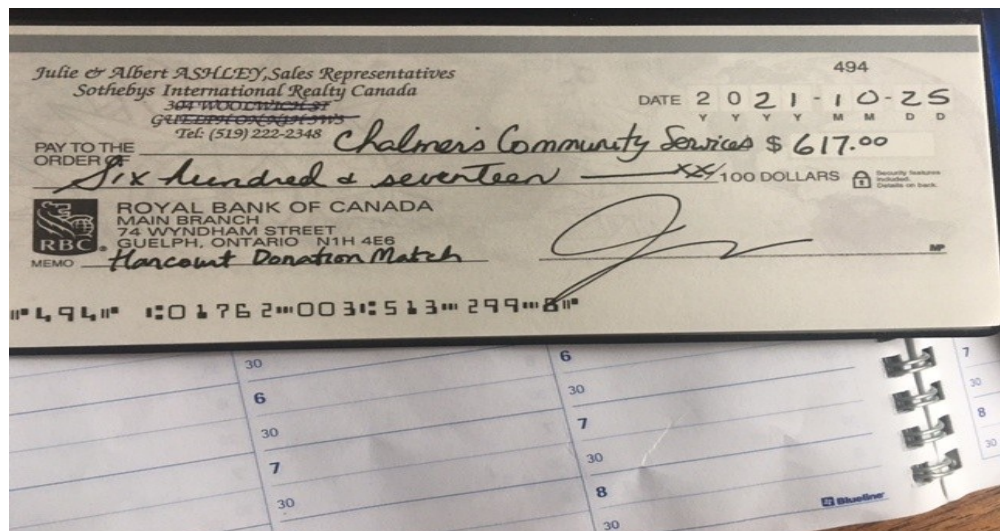 494
Julie & Albert ASHLEY, Sales Representatives
Sothebys International Realty Canada
304 WOOLWICH ST
GUELPH ON N1H 3W5
Tel: (519) 222-2348
DATE 2 0 2 1 - 1 0 - 2 5
Y Y Y Y M M D D
PAY TO THE ORDER OF Chalmers Community Services $ 617.00
Six hundred & seventeen xx/100 DOLLARS
Security features included. Details on back.
RBC ®
ROYAL BANK OF CANADA
MAIN BRANCH
74 WYNDHAM STREET
GUELPH, ONTARIO N1H 4E6
MEMO Harcourt Donation Match
MP
⑈494⑈ ⑆01762⑉003⑆513⑉299⑉8⑈
30
6
30
7
30
6
30
7
30
8
30
Blueline
7
30
8
30